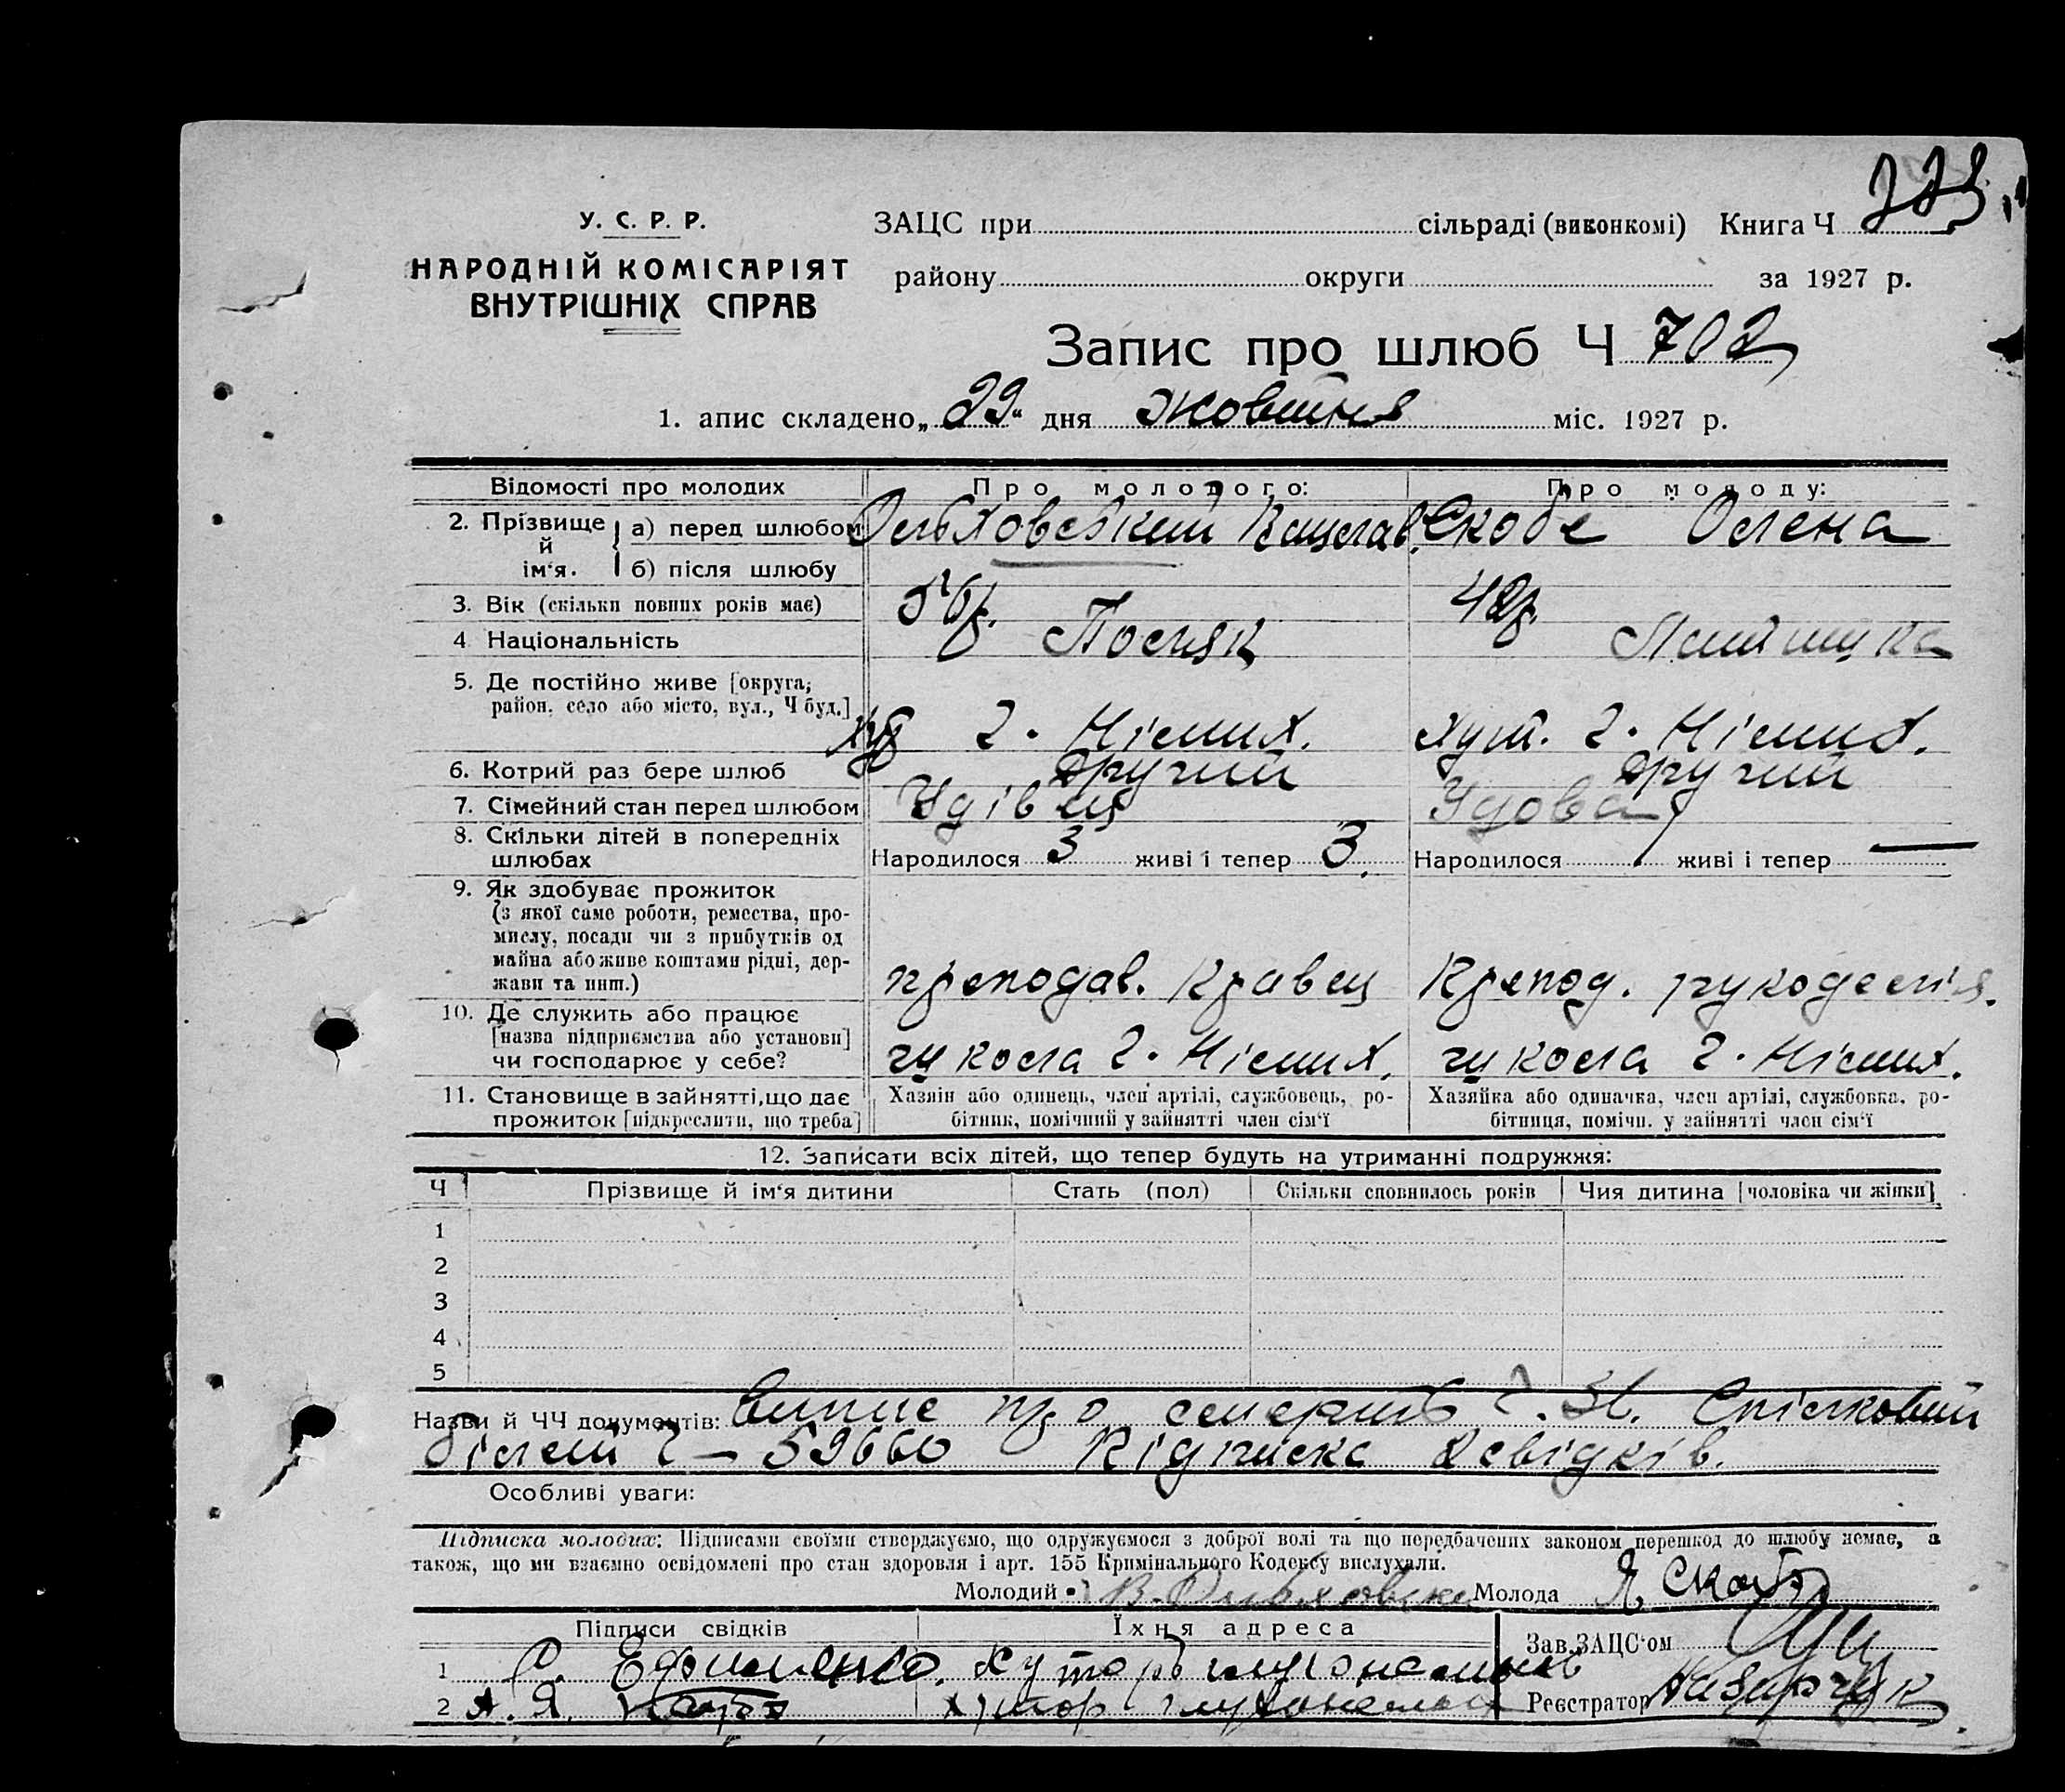 У. С. Р. Р.
НАРОДНІЙ КОМІСАРІЯТ
ВНУТРІШНІХ СПРАВ
ЗАЦС при сільраді (виконкомі) Книга Ч
району округи за 1927 р.
Запис про шлюб Ч 702
1. апис складено „29" дня жовтня міс. 1927 р.
Відомості про молодих Про молодого: Про молоду:
2. Прізвище й ім'я. а) перед шлюбом Ольховський Вацслав. Скобе Олена
б) після шлюбу
3. Вік (скільки повних років має) 56р. 42р.
4 Національність Поляк Латишка
5. Де постійно живе [округа, район, село або місто, вул., Ч буд.]
хут Г. Німих. хут. Г. Німих.
6. Котрий раз бере шлюб Другий Другий
7. Сімейний стан перед шлюбом Удівец Удова
8. Скільки дітей в попередніх шлюбах Народилося 3 живі і тепер 3. Народилося живі і тепер —
9. Як здобуває прожиток
(з якої саме роботи, ремества, про-
мислу, посади чи з прибутків од
майна або живе коштами рідні, дер-
жави та инш.) преподав. Кравец Препод. рукоделія.
10. Де служить або працює
[назва підприємства або установи]
чи господарює у себе? школа Г. Німих. школа Г. Німих.
11. Становище в зайнятті, що дає Хазяїн або одинець, член артілі, службовець, ро- Хазяйка або одиначка, член артілі, службовка, ро-
прожиток [підкреслити, що треба] бітник, помічний у зайнятті член сім'ї бітниця, помічн. у зайнятті член сім'ї
12. Записати всіх дітей, що тепер будуть на утриманні подружжя:
Ч Прізвище й ім'я дитини Стать (пол) Скільки сповнилось років Чия дитина [чоловіка чи жінки]
1
2
3
4
5
Назви й ЧЧ документів: Випис про смерть Спілковий
білет Ч – 59660 Підписка Свідків.
Особливі уваги:
Підписка молодих: Підписами своїми стверджуємо, що одружуємося з доброї волі та що передбачених законом перешкод до шлюбу немає, а
також, що ми взаємно освідомлені про стан здоровля і арт. 155 Кримінального Кодексу вислухали.
Молодий В. Ольховск Молода Скобэ
Підписи свідків Їхня адреса Зав. ЗАЦС'ом
1 Ефименко. Хуторъ глухонемых
2 А. Я. хутор глухонемых Реєстратор Назарчук